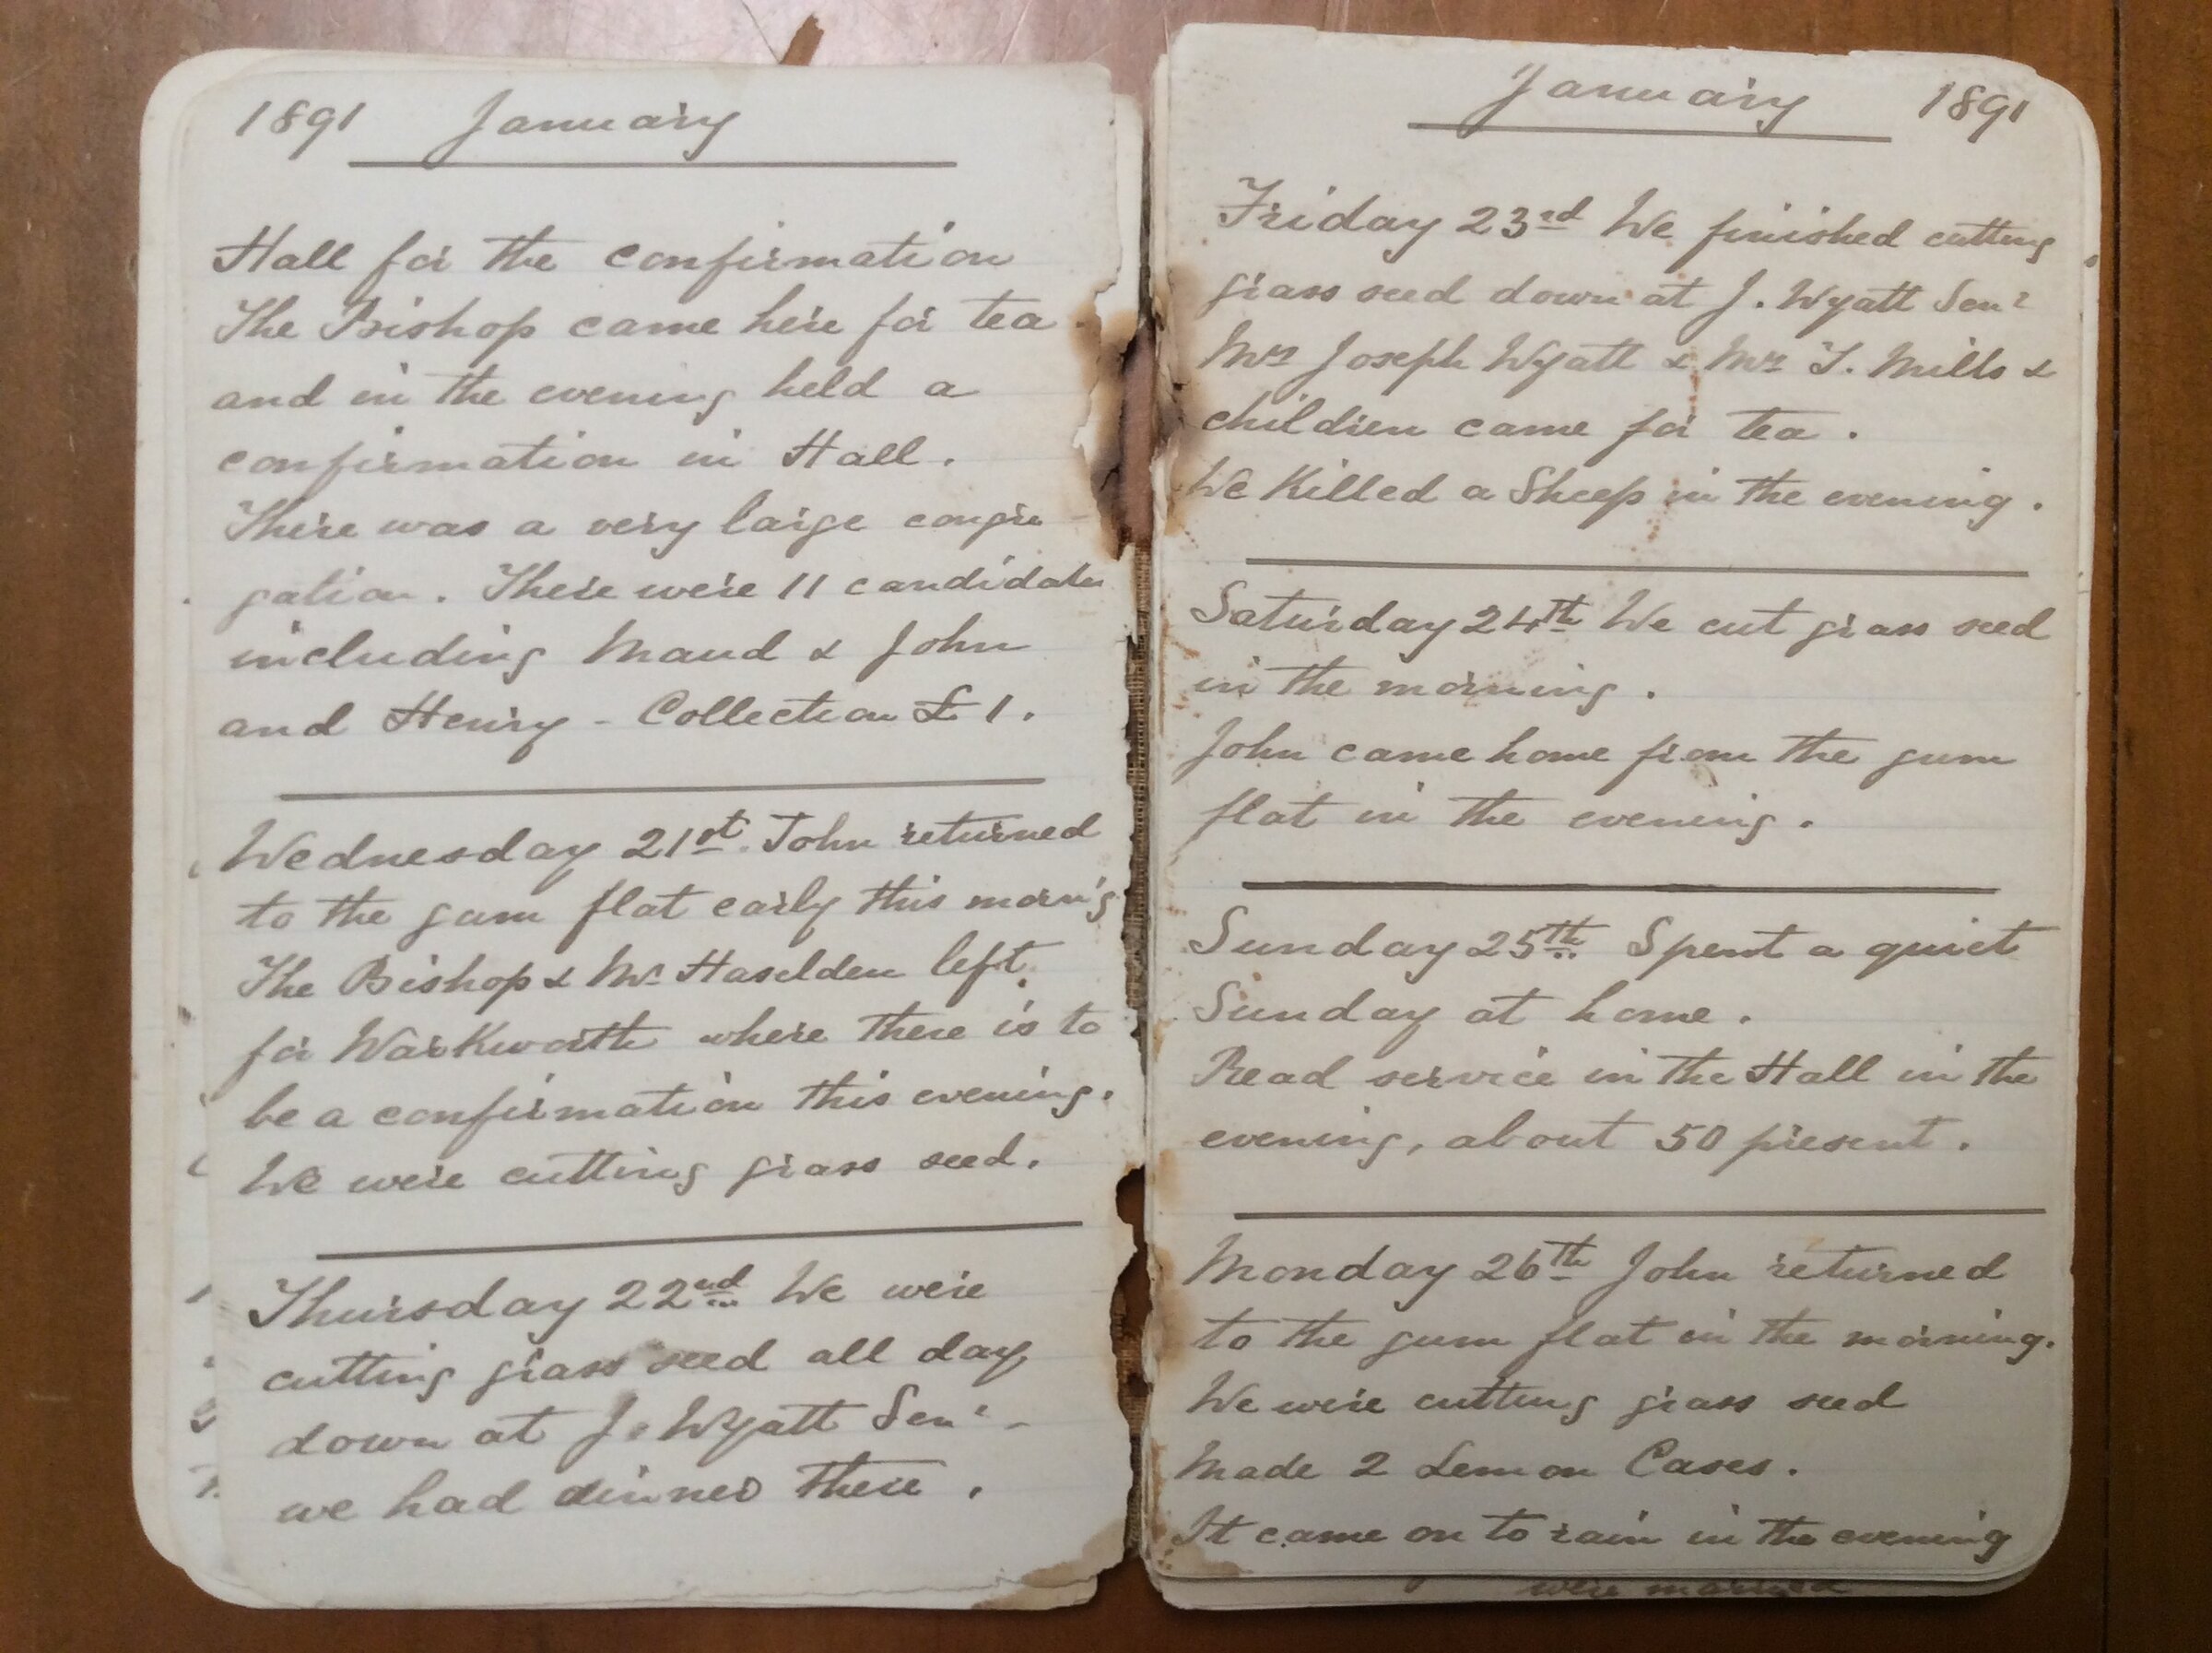 1891 January
Hall for the confirmation
The Bishop came here for tea
and in the evening held a
confirmation in Hall.
There was a very large congre
gation. There were 11 candidates
including Maud & John
and Henry - Collection £1.
Wednesday 21st. John returned
to the gum flat early this morn'g
The Bishop & Mr Haselden left
for Warkworth where there is to
be a confirmation this evening.
We were cutting grass seed.
Thursday 22nd We were
cutting grass seed all day
down at J. Wyatt Senr -
we had dinner there.
January 1891
Friday 23rd We finished cutting
grass seed down at J. Wyatt Senr
Mrs Joseph Wyatt & Mrs T. Mills &
children came for tea.
We Killed a Sheep in the evening.
Saturday 24th We cut grass seed
in the morning.
John came home from the gum
flat in the evening.
Sunday 25th Spent a quiet
Sunday at home.
Read service in the Hall in the
evening, about 50 present.
Monday 26th John returned
to the gum flat in the morning.
We were cutting grass seed
Made 2 Lemon Cases.
It came on to rain in the evening
were married